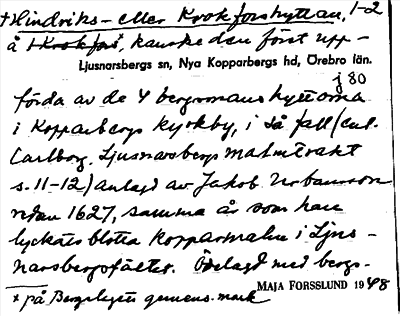 +Hindriks- eller Krokforshyttan, 1-2
å +Krokfors*, kanske den först upp-
Ljusnarsbergs sn, Nya Kopparbergs hd, Örebro län.
j 80
förda av de 4 bergsmanshyttorna
i Kopparbergs kyrkby, i så fall (enl.
Carlborg, Ljusnarsbergs malmtrakt
s. 11-12) anlagd av Jakob Urbansson
redan 1627, samma år som han
lyckats blotta kopparmalm i Ljus-
narsbergsfältet. Ödelagd med bergs-
MAJA FORSSLUND 1948
* på Bergslagets gemens. mark